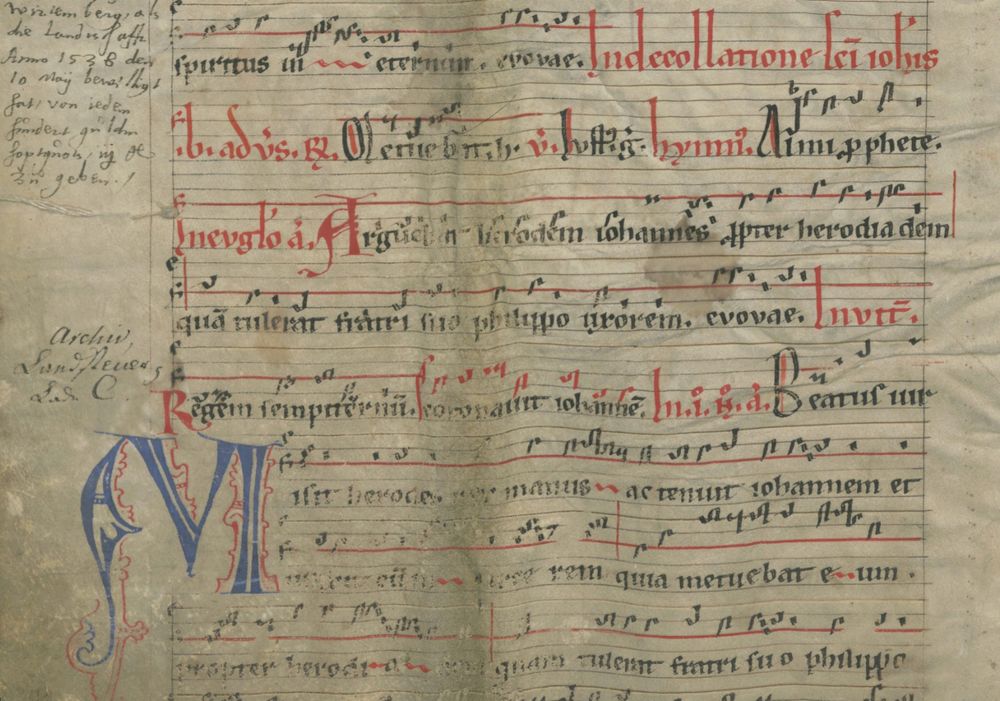 wirtemberg, als
die Landschafft
Anno 1538 den
10 May bewilligt
hat, von jedem
hundert gulden
zu geben.
spiritus in eternum. evovae. In decollatione sci iohis
.b. ad vs. R. Metuebat. h. v. Iust g. hymn. Almi prophete.
In evglo a. Arguebat herodem iohannes propter herodiadem
quam tulerat fratri suo philippo uxorem. evovae. Invit.
Archiv,
Landsteuer,
Lad. C.
Regem sempiternum. coronavit iohannem. In. i. n. a. Beatus uir
Misit herodes manus ac tenuit iohannem et
rem quia metuebat eum.
propter herodi quam tulerat fratri suo philippo